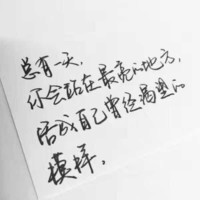 总有一天,
你会站在最亮的地方,
活成自己曾经渴望的
模样.